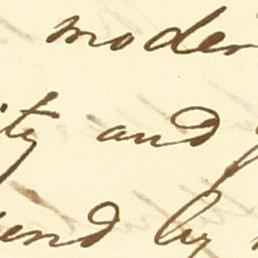 moder
ity and
end by